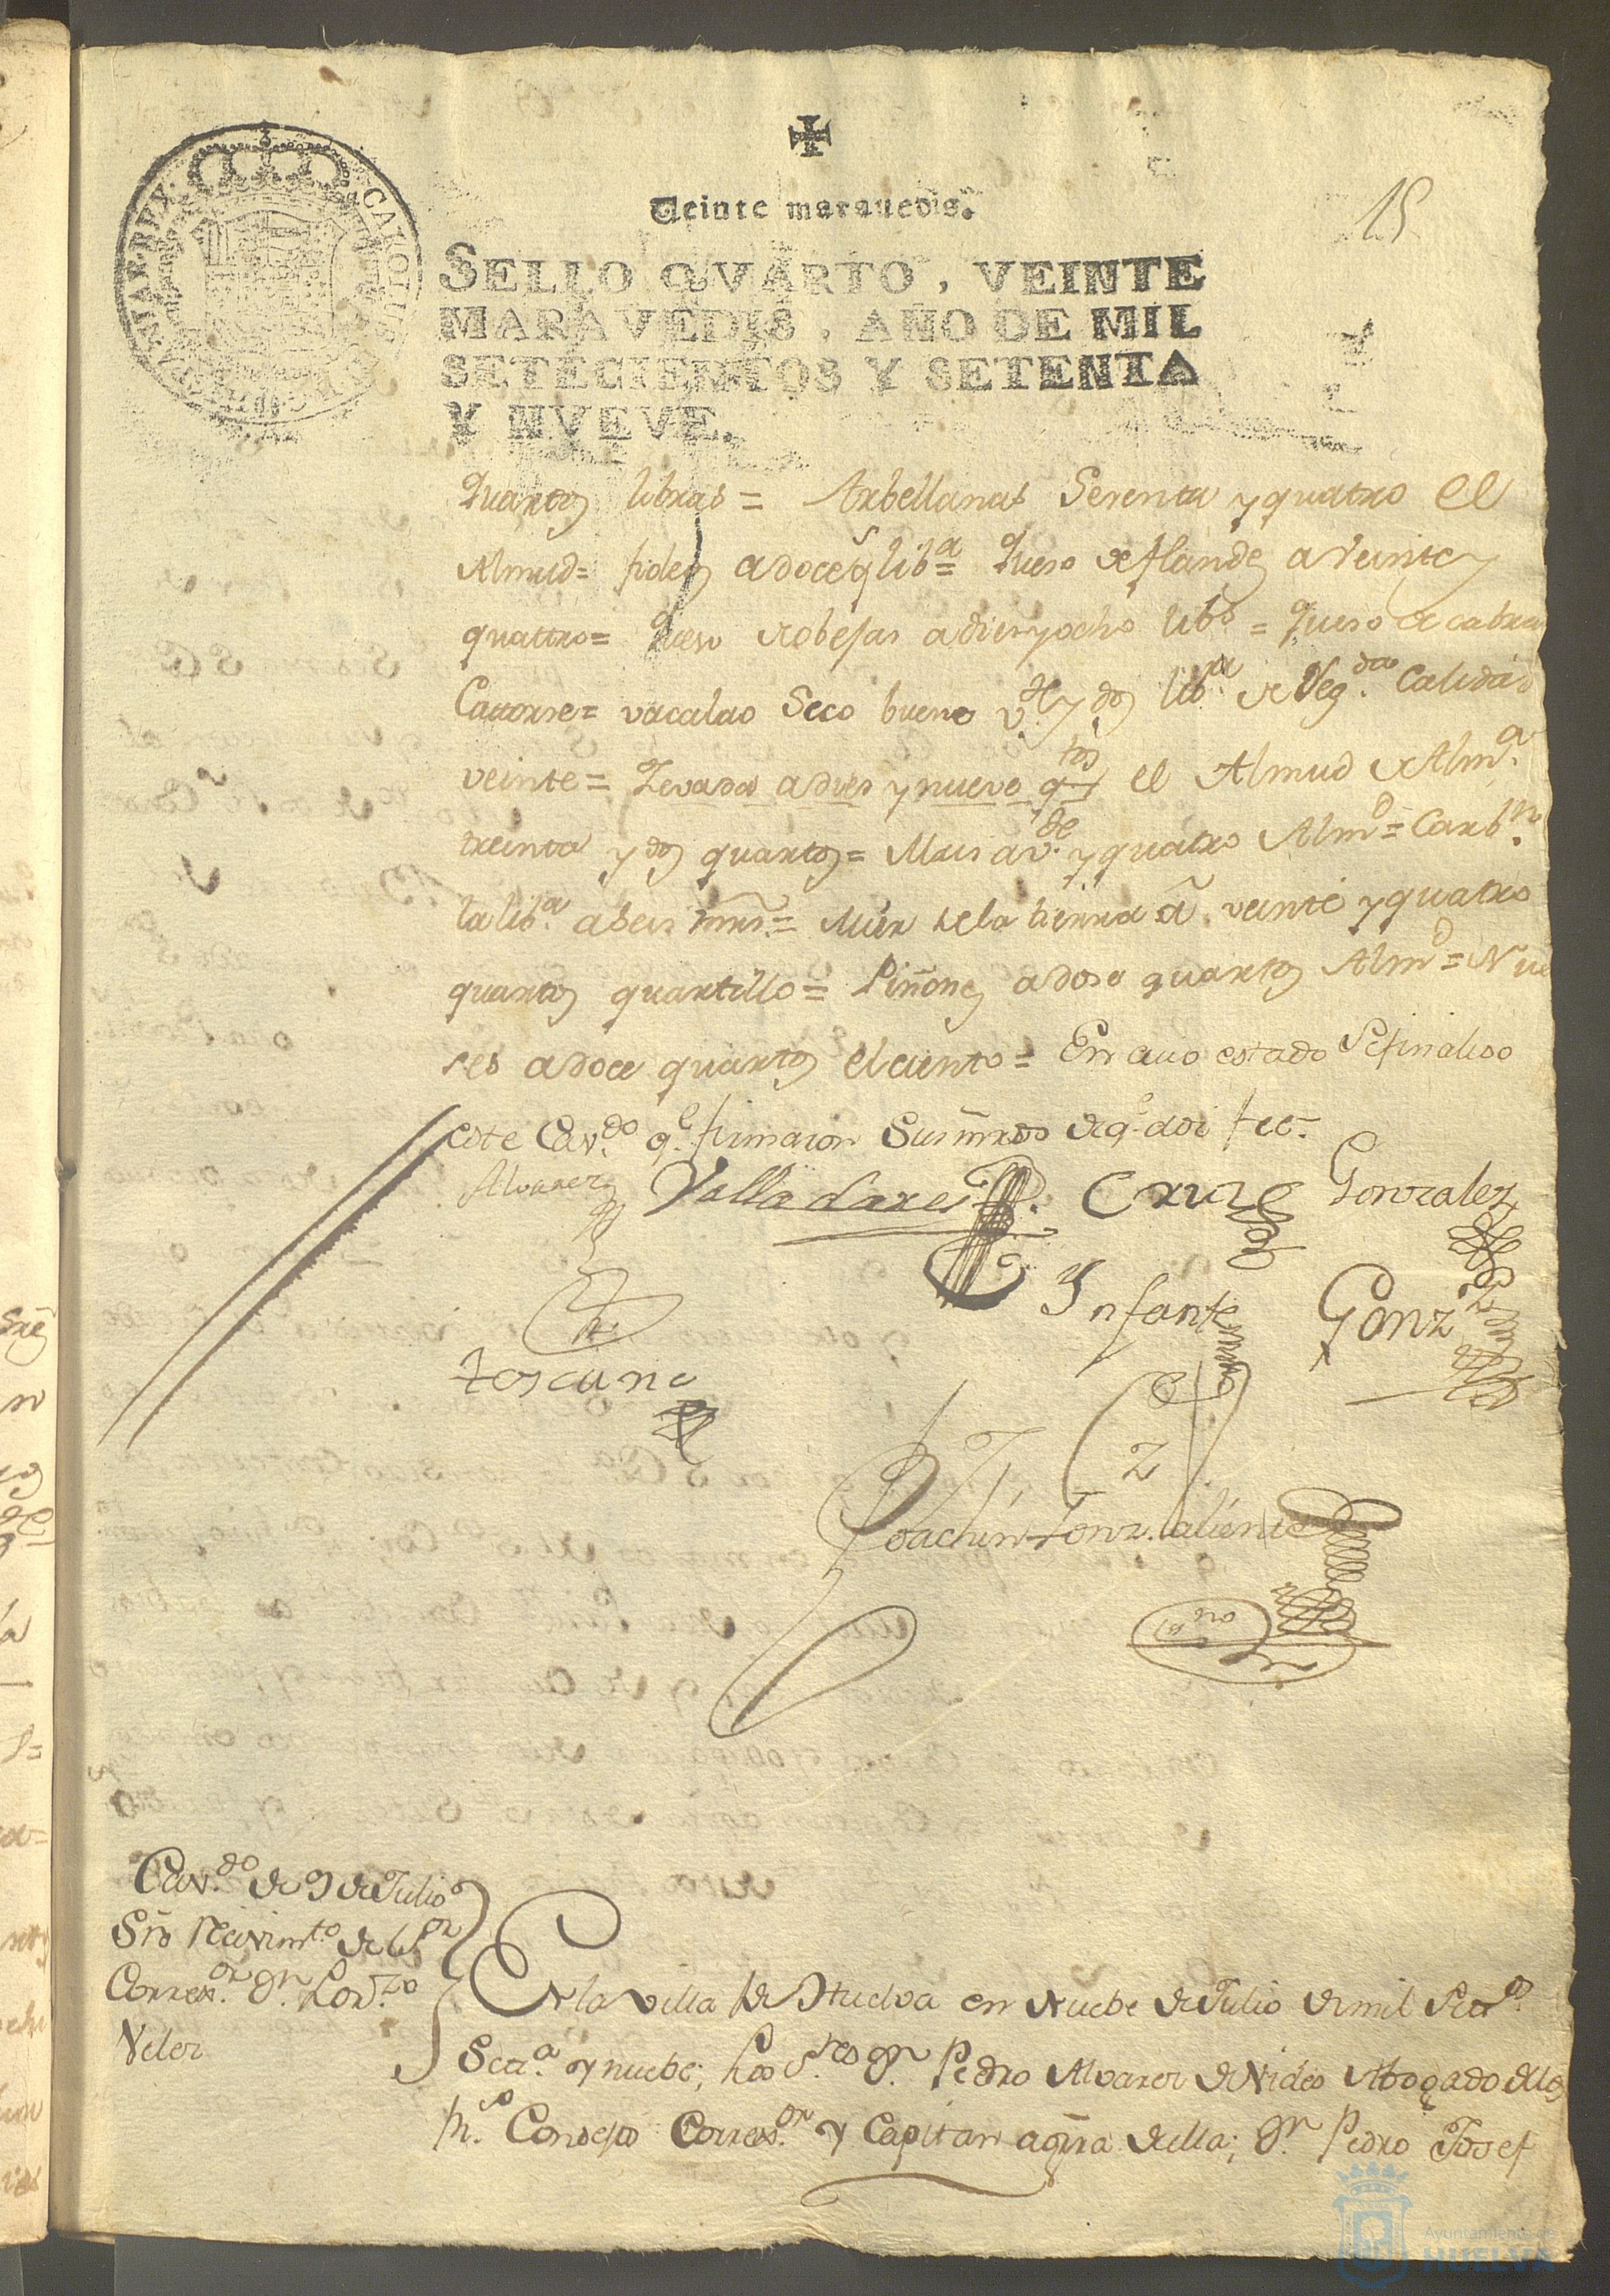 15
Veinte marauedis.
SELLO QVARTO, VEINTE
MARAVEDIS, AÑO DE MIL
SETECIENTOS Y SETENTA
Y NVEVE.
CAROLUS REX
quartos libras = Arbellanas Sesenta y quatro el
Almud = fideos a doce qs lib.a = queso de flandes a Veinte y
quattro = queso de obejas a dies y ocho lib.s = queso de cabra
Catorse = vacalao Seco bueno v.te y dos lib.a de Seg.da Calidad
veinte = Zevada a dies y nueve q.tos el Almud de Alm.a
treinta y dos quartos = Mais a v.te y quatro Alm.d = Carb.n
la lib.a a seis mrs = Miera de la tierra a veinte y quatro
quartos quartillo = Piñones a dose quartos Alm.d = Nue
ses a doce quartos el ciento = En cuio estado Se finaliso
este Cav.do q.e firmaron Sus mrds de q.e doi fee =
Alvarez Valladares Cruz Gonzalez
Infante Gonz
toscano
Joachin Gonz. Caliente
es.no
Cav.do de 9 de Julio
Sre recivim.to de el S.or
Correx.or D.n Lor.zo
Velez
En la villa de Huelva en nuebe de Julio de mil Setez.s
Setz.a y nuebe; Los S.res D.n Pedro Alvarez de Abogado de los
R.s Consejos Correx.or y Capitan a grra de ella; D.n Pedro Josef
Ayuntamiento de
HUELVA